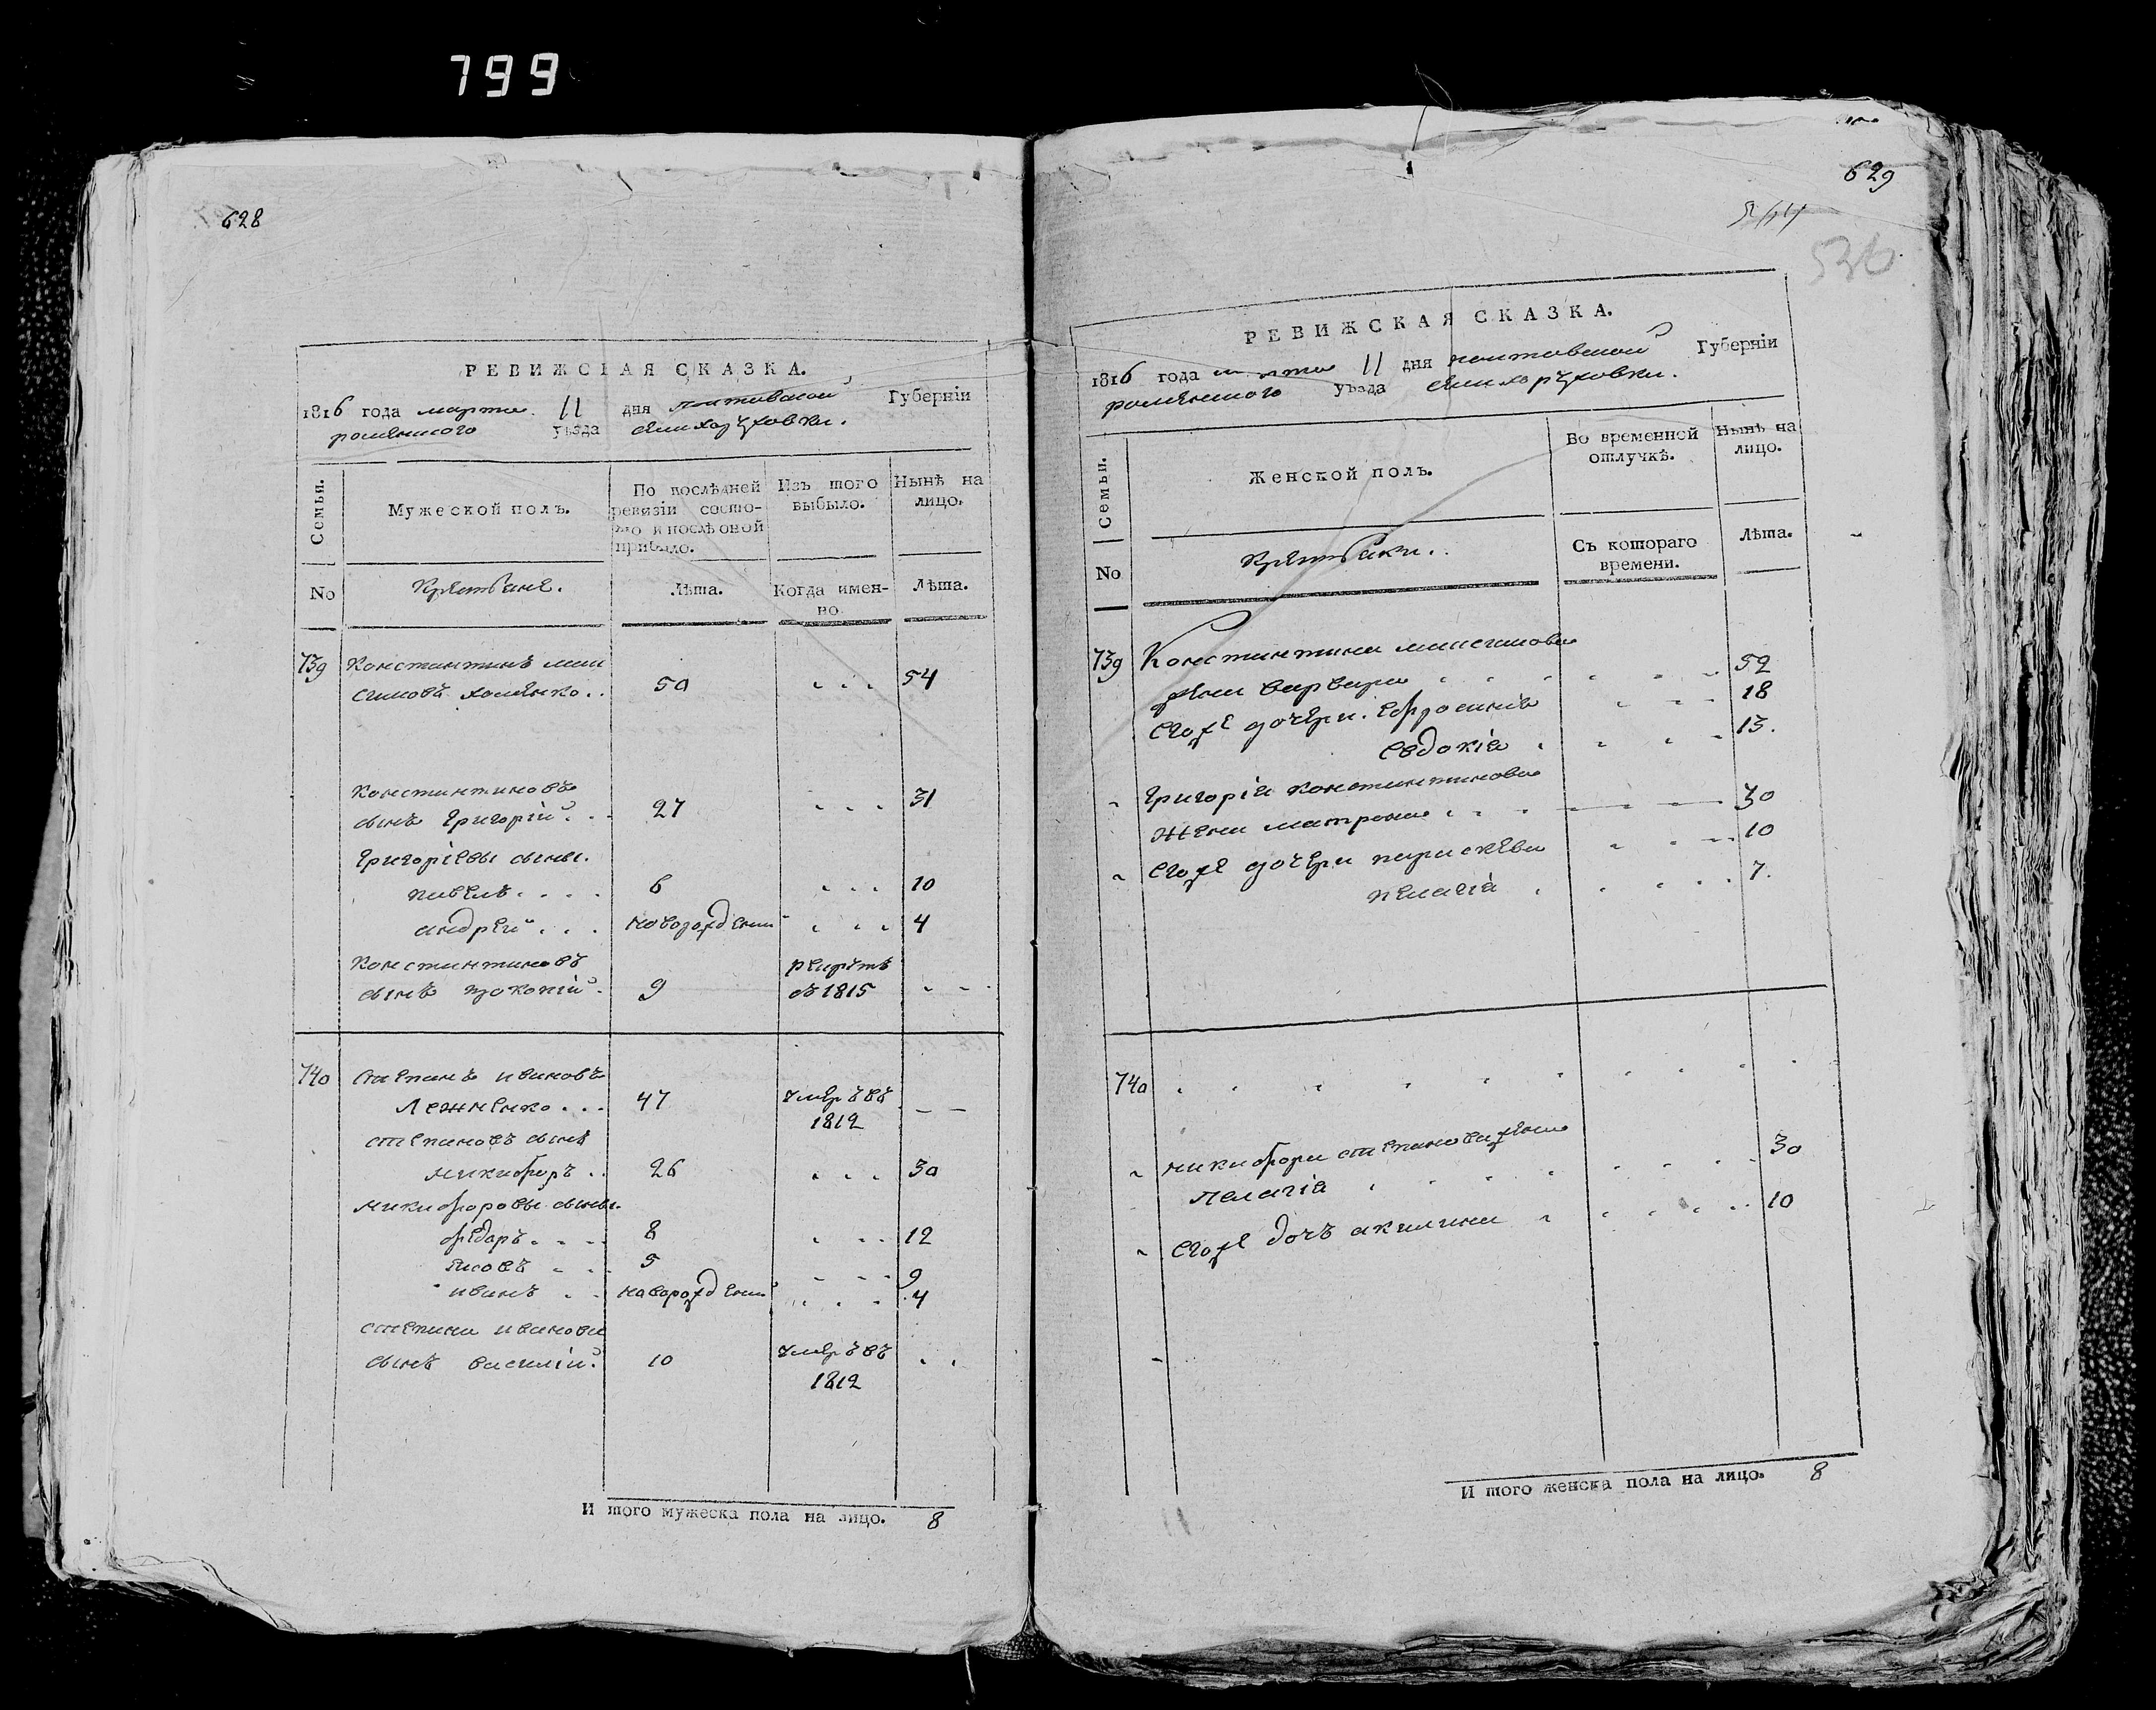 799
628
РЕВИЖСКАЯ СКАЗКА.
1816 года марта 11 дня полтавской Губерніи
роменского уѣзда села хоружовки.
Семьи.
Мужеской полъ.
По послѣдней ревизіи состояло и послѣ оной прибыло.
Изъ того выбыло.
Нынѣ на лицо.
No
Крестьяне.
Лѣта.
Когда именно.
Лѣта.
739 Константинъ мак
симовъ хоменко .. 50 54
Константиновъ
сынъ григорій . 27 31
григоріевы сыны.
павелъ . . . . 6 10
андрей . . . новорожденій 4
Константиновъ рекрутъ
сынъ прокопій . 9 съ 1815
740 степанъ ивановъ
Леженко . . . 47 умеръ въ
1812
степановъ сынъ
никифоръ . . 26 30
никифоровы сыны.
федоръ . . . . 8 12
яковъ . . . 5 9
иванъ . . новорожденій 4
степана иванова
сынъ василій . 10 умеръ въ
1812
И того мужеска пола на лицо. 8
629
536
РЕВИЖСКАЯ СКАЗКА.
1816 года марта 11 дня полтавской Губерніи
роменского уѣзда села хоружовки.
Семьи.
Женской полъ.
Во временной отлучкѣ.
Нынѣ на лицо.
No
Крестьянки.
Съ котораго времени.
Лѣта.
739 Константина максимова
жена варвара 52
Егоже дочери. Ефросинія 18
Евдокія 13.
григорія константинова
жена матрона 30
Егоже дочери параскева 10
пелагія 7.
740
никифора степанова жена
пелагія 30
Егоже дочъ акилина 10
И того женска пола на лицо. 8